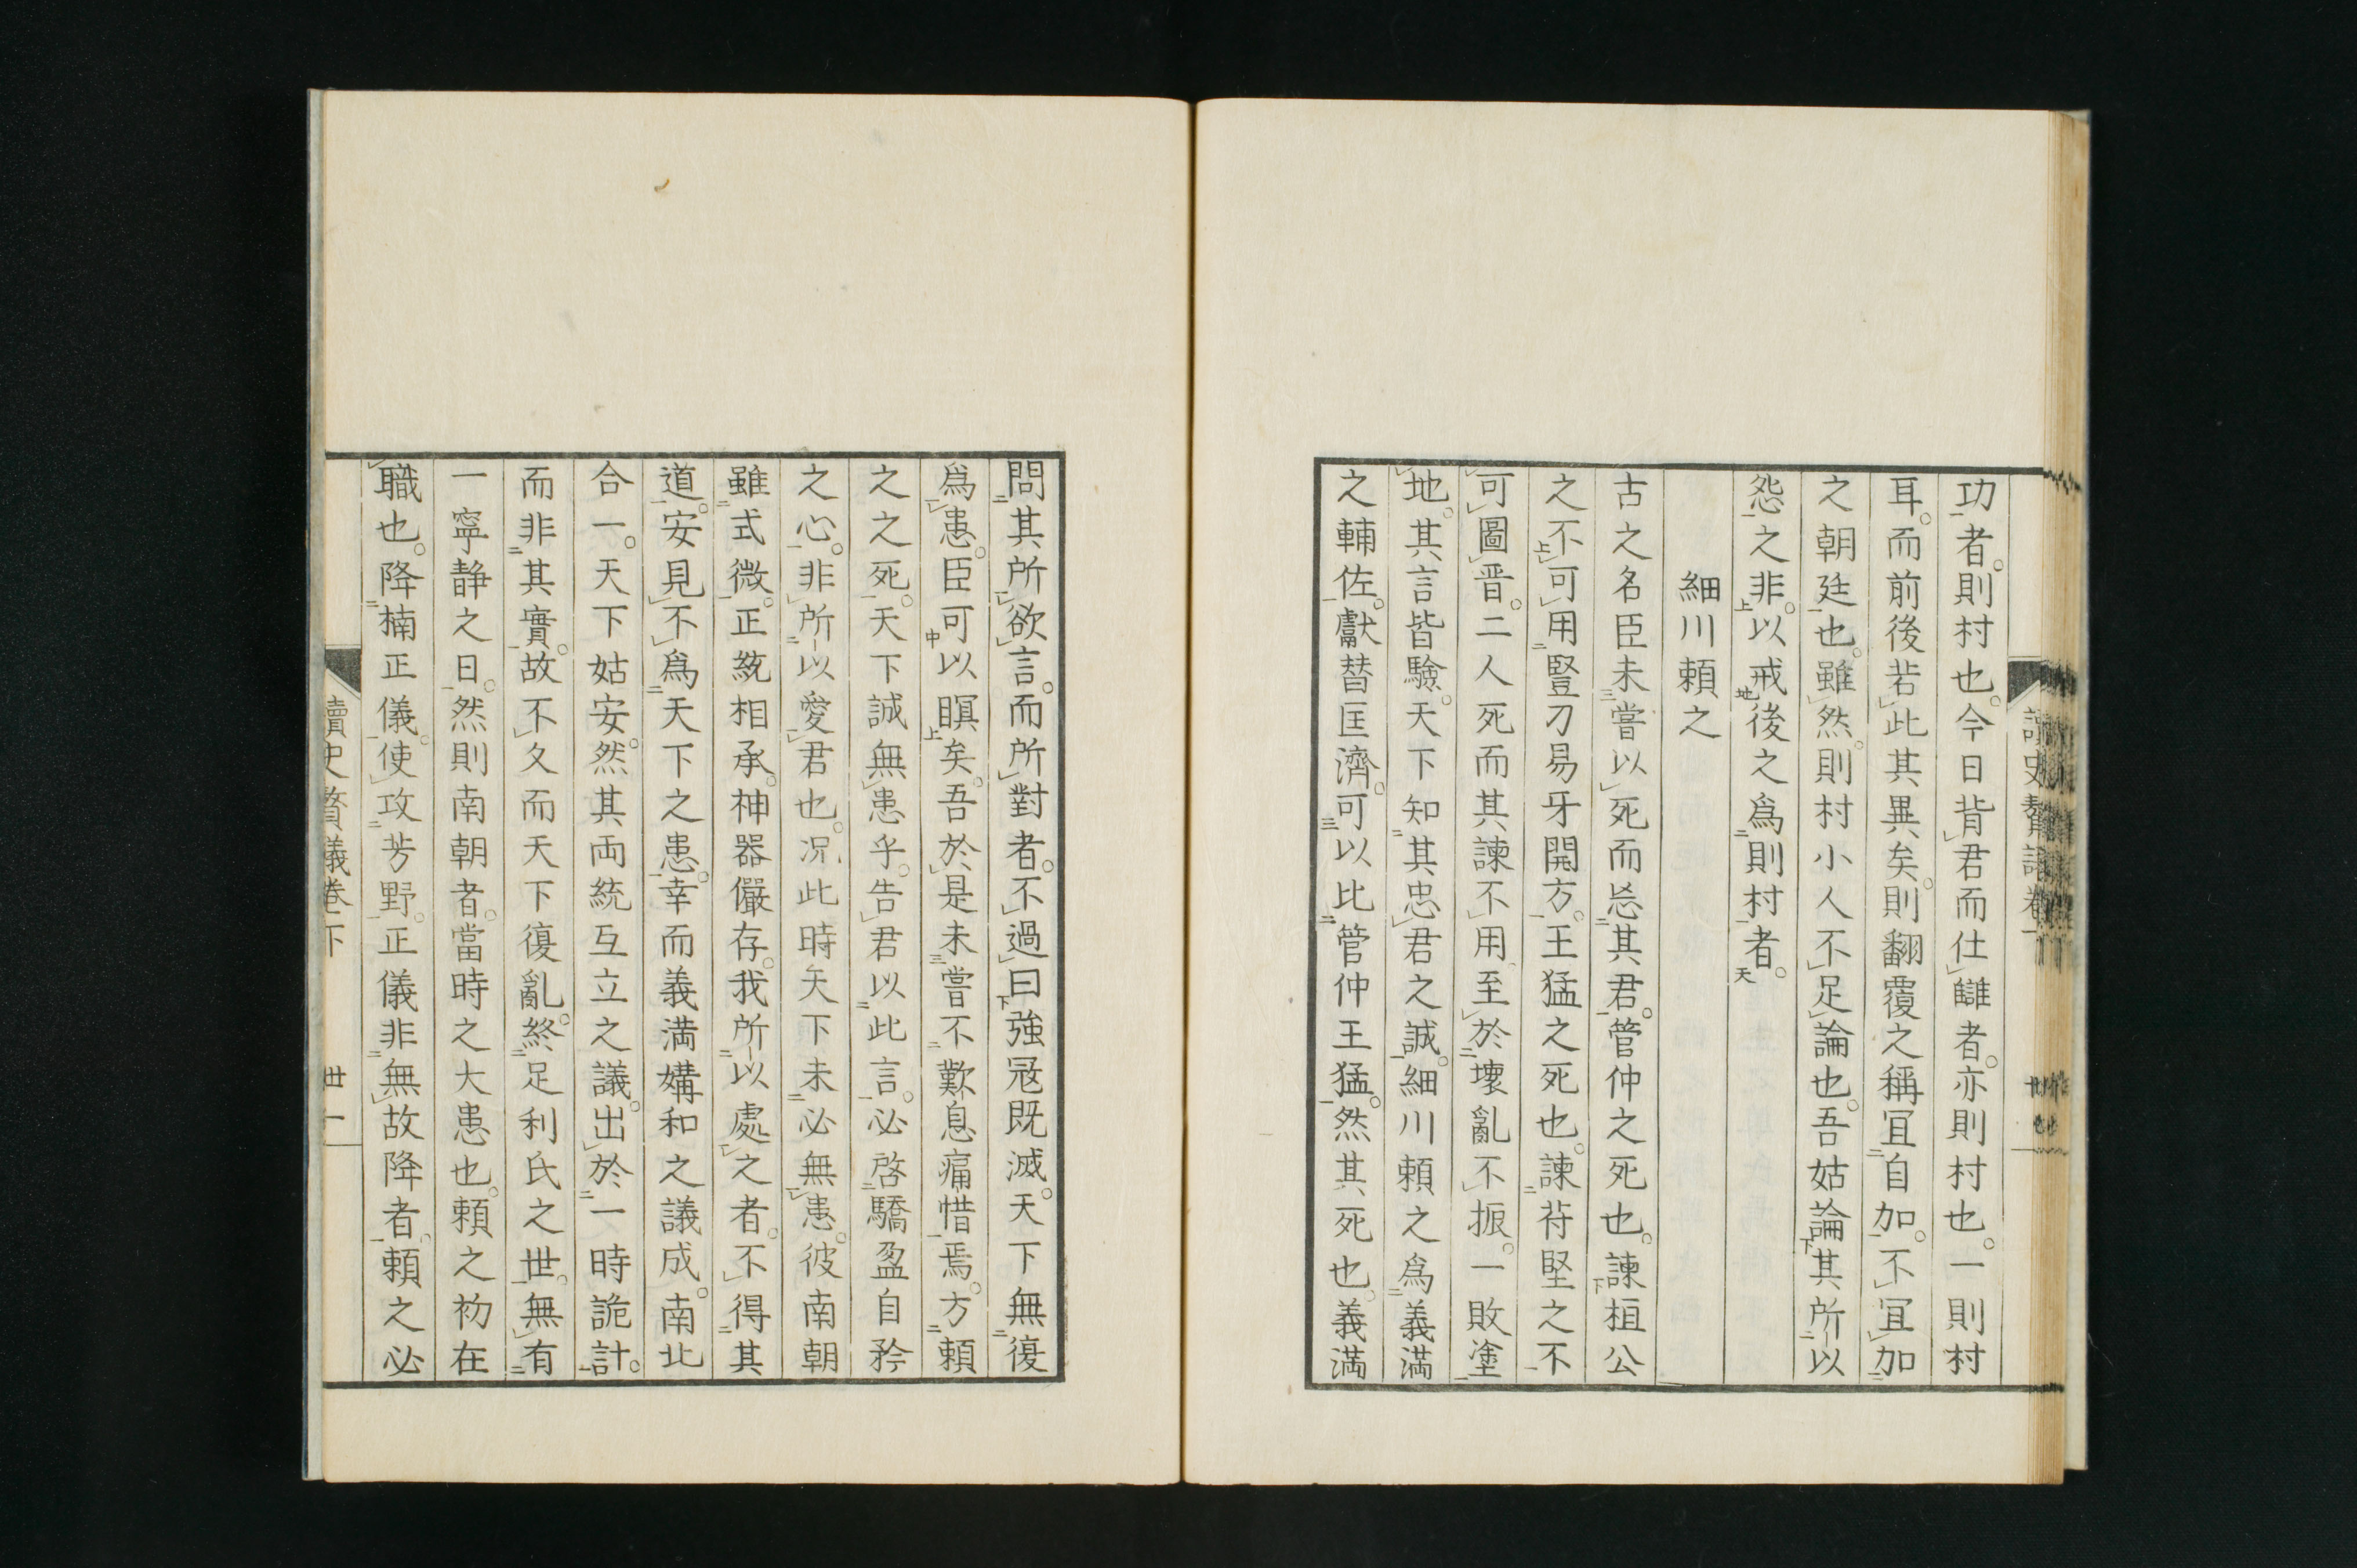 功者。則村也。今日背君而仕讎者。亦則村也。一則村
耳。而前後若此其異矣。則翻覆之稱宜自加。不宜加
之朝廷也。雖然。則村小人不足論也。吾姑論其所以
怨之非。以戒後之爲則村者。
細川頼之
古之名臣未嘗以死而忘其君。管仲之死也。諫桓公
之不可用豎刀易牙開方。王猛之死也。諫苻堅之不
可圖晋。二人死而其諫不用。至於壞亂不振。一敗塗
地。其言皆驗。天下知其忠君之誠。細川頼之爲義満
之輔佐。獻替匡濟。可以比管仲王猛。然其死也。義満
問其所欲言。而所對者。不過曰強冦既滅。天下無復
爲患。臣可以瞑矣。吾於是未嘗不歎息痛惜焉。方頼
之之死。天下誠無患乎。告君以此言。必啓驕盈自矜
之心。非所以愛君也。况此時天下未必無患。彼南朝
雖式微。正統相承。神器儼存。我所以處之者。不得其
道。安見不爲天下之患。幸而義満媾和之議成。南北
合一。天下姑安。然其両統互立之議。出於一時詭計。
而非其實。故不久而天下復亂。終足利氏之世。無有
一寧静之日。然則南朝者。當時之大患也。頼之初在
職也。降楠正儀。使攻芳野。正儀非無故降者。頼之必
讀史贅議卷下
世一